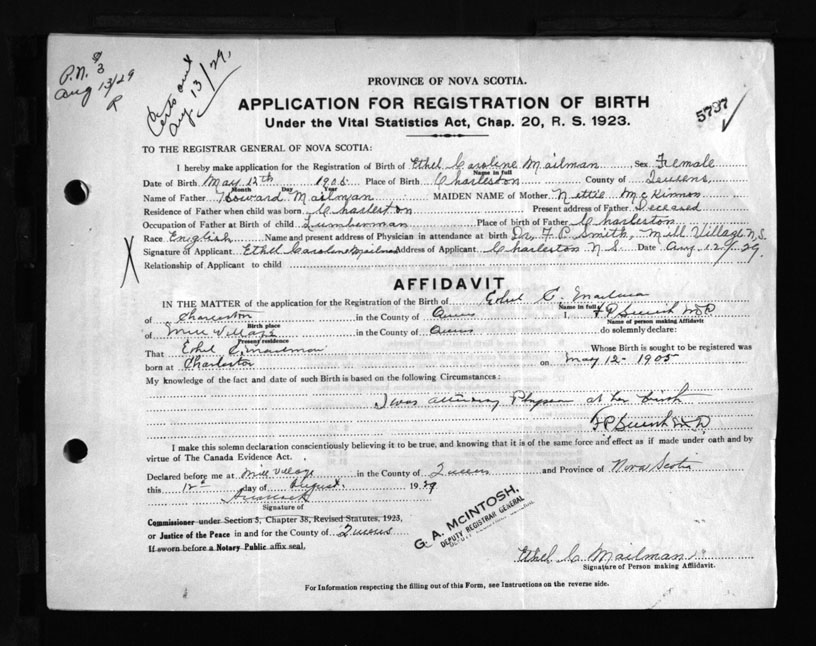 P.N. $3
Aug 13/29
R
Certs out
Aug. 13/29.
5737
PROVINCE OF NOVA SCOTIA.
APPLICATION FOR REGISTRATION OF BIRTH
Under the Vital Statistics Act, Chap. 20, R. S. 1923.
TO THE REGISTRAR GENERAL OF NOVA SCOTIA:
I hereby make application for the Registration of Birth of Ethel Caroline Mailman, Sex Female
Name in full
Date of Birth May 12th 1905 Place of Birth Charleston County of Queens
Month Day Year
Name of Father Howard Mailman MAIDEN NAME of Mother Nettie McKinnon
Residence of Father when child was born Charleston Present address of Father Deceased
Occupation of Father at Birth of child Lumberman Place of birth of Father Charleston
Race English Name and present address of Physician in attendance at birth Dr. F. P. Smith, Mill Village N.S.
Signature of Applicant Ethel Caroline Mailman Address of Applicant Charleston N.S. Date Aug. 12/29.
Relationship of Applicant to child
X
AFFIDAVIT
IN THE MATTER of the application for the Registration of the Birth of Ethel C. Mailman
Name in full
of Charleston in the County of Queens I, F P Smith MD
Birth place Name of person making Affidavit
of Mill Village in the County of Queens do solemnly declare:
Present residence
That Ethel C. Mailman Whose Birth is sought to be registered was
born at Charleston on May 12 - 1905
My knowledge of the fact and date of such Birth is based on the following Circumstances:
I was attending Physician at her birth
F P Smith M.D.
I make this solemn declaration conscientiously believing it to be true, and knowing that it is of the same force and effect as if made under oath and by
virtue of The Canada Evidence Act.
Declared before me at Mill Village in the County of Queens and Province of Nova Scotia
this 12 day of August 1929
Signature of
Commissioner under Section 5, Chapter 38, Revised Statutes, 1923,
or Justice of the Peace in and for the County of Queens
If sworn before a Notary Public affix seal.
G. A. McINTOSH,
DEPUTY REGISTRAR GENERAL
Ethel C Mailman
Signature of Person making Affidavit.
For Information respecting the filling out of this Form, see Instructions on the reverse side.